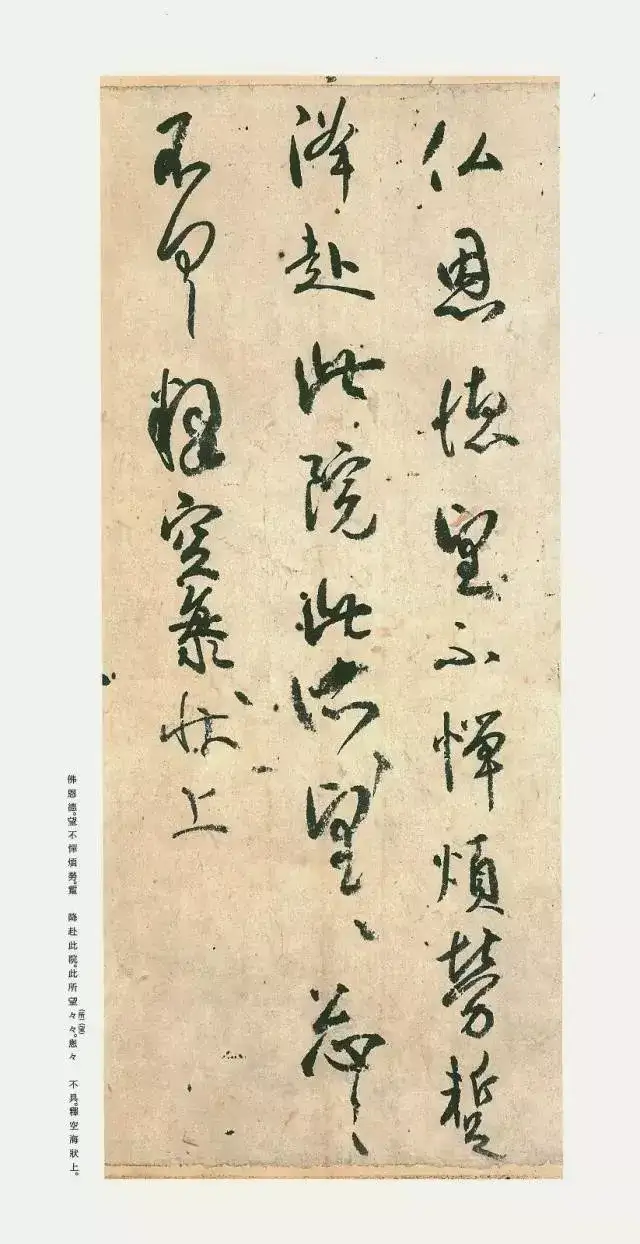 仏恩徳望不憚煩勞蹔
降赴此院此所望〻忩〻
不具釋空海状上
佛恩德。望不憚煩勞。蹔　降赴此院。此所望々々。(所)(望)忩々　不具。釋空海狀上。